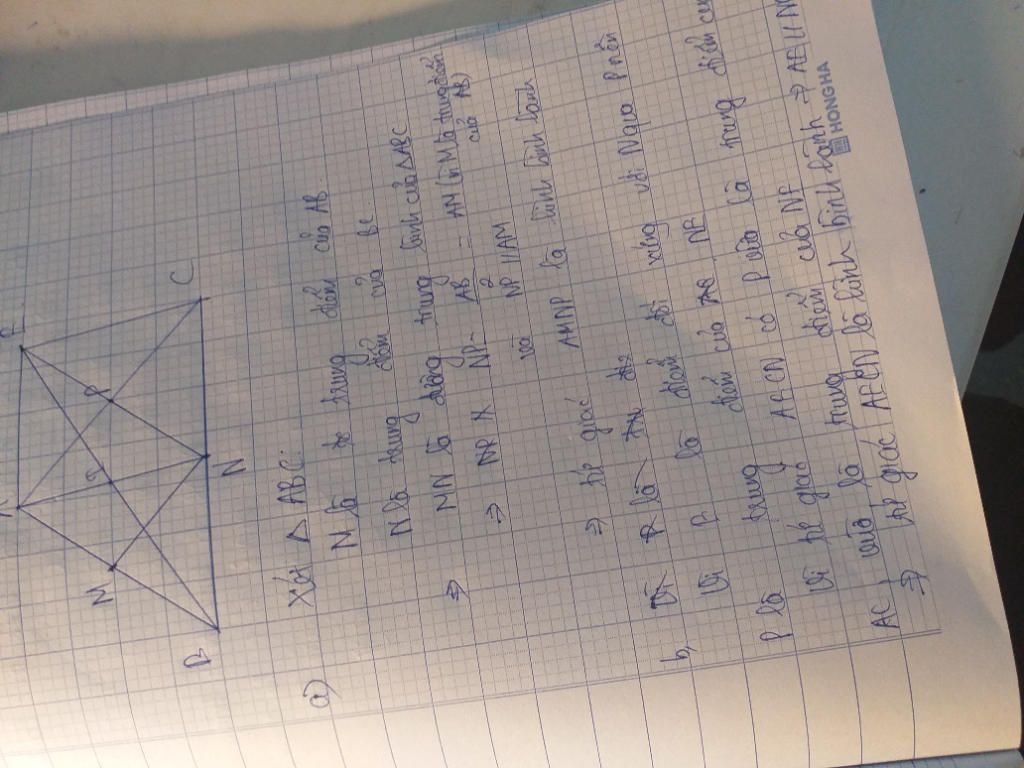 E
M
P
B
N
C
a) Xét Δ ABC:
N là trung điểm của AB
N là trung điểm của BC
⇒ MN là đường trung bình của ΔABC
⇒ NP = AB/2 = AM (vì M là trung điểm của AB)
và NP // AM
⇒ tứ giác AMNP là hình bình hành
b, Vì đối xứng với N qua P nên
Vì P là điểm của NE
P là trung điểm của NE
Vì tứ giác AECN có P vừa là trung điểm của
AC vừa là trung điểm của NP
⇒ tứ giác AECN là hình bình hành ⇒ AE // NC
HONGHA